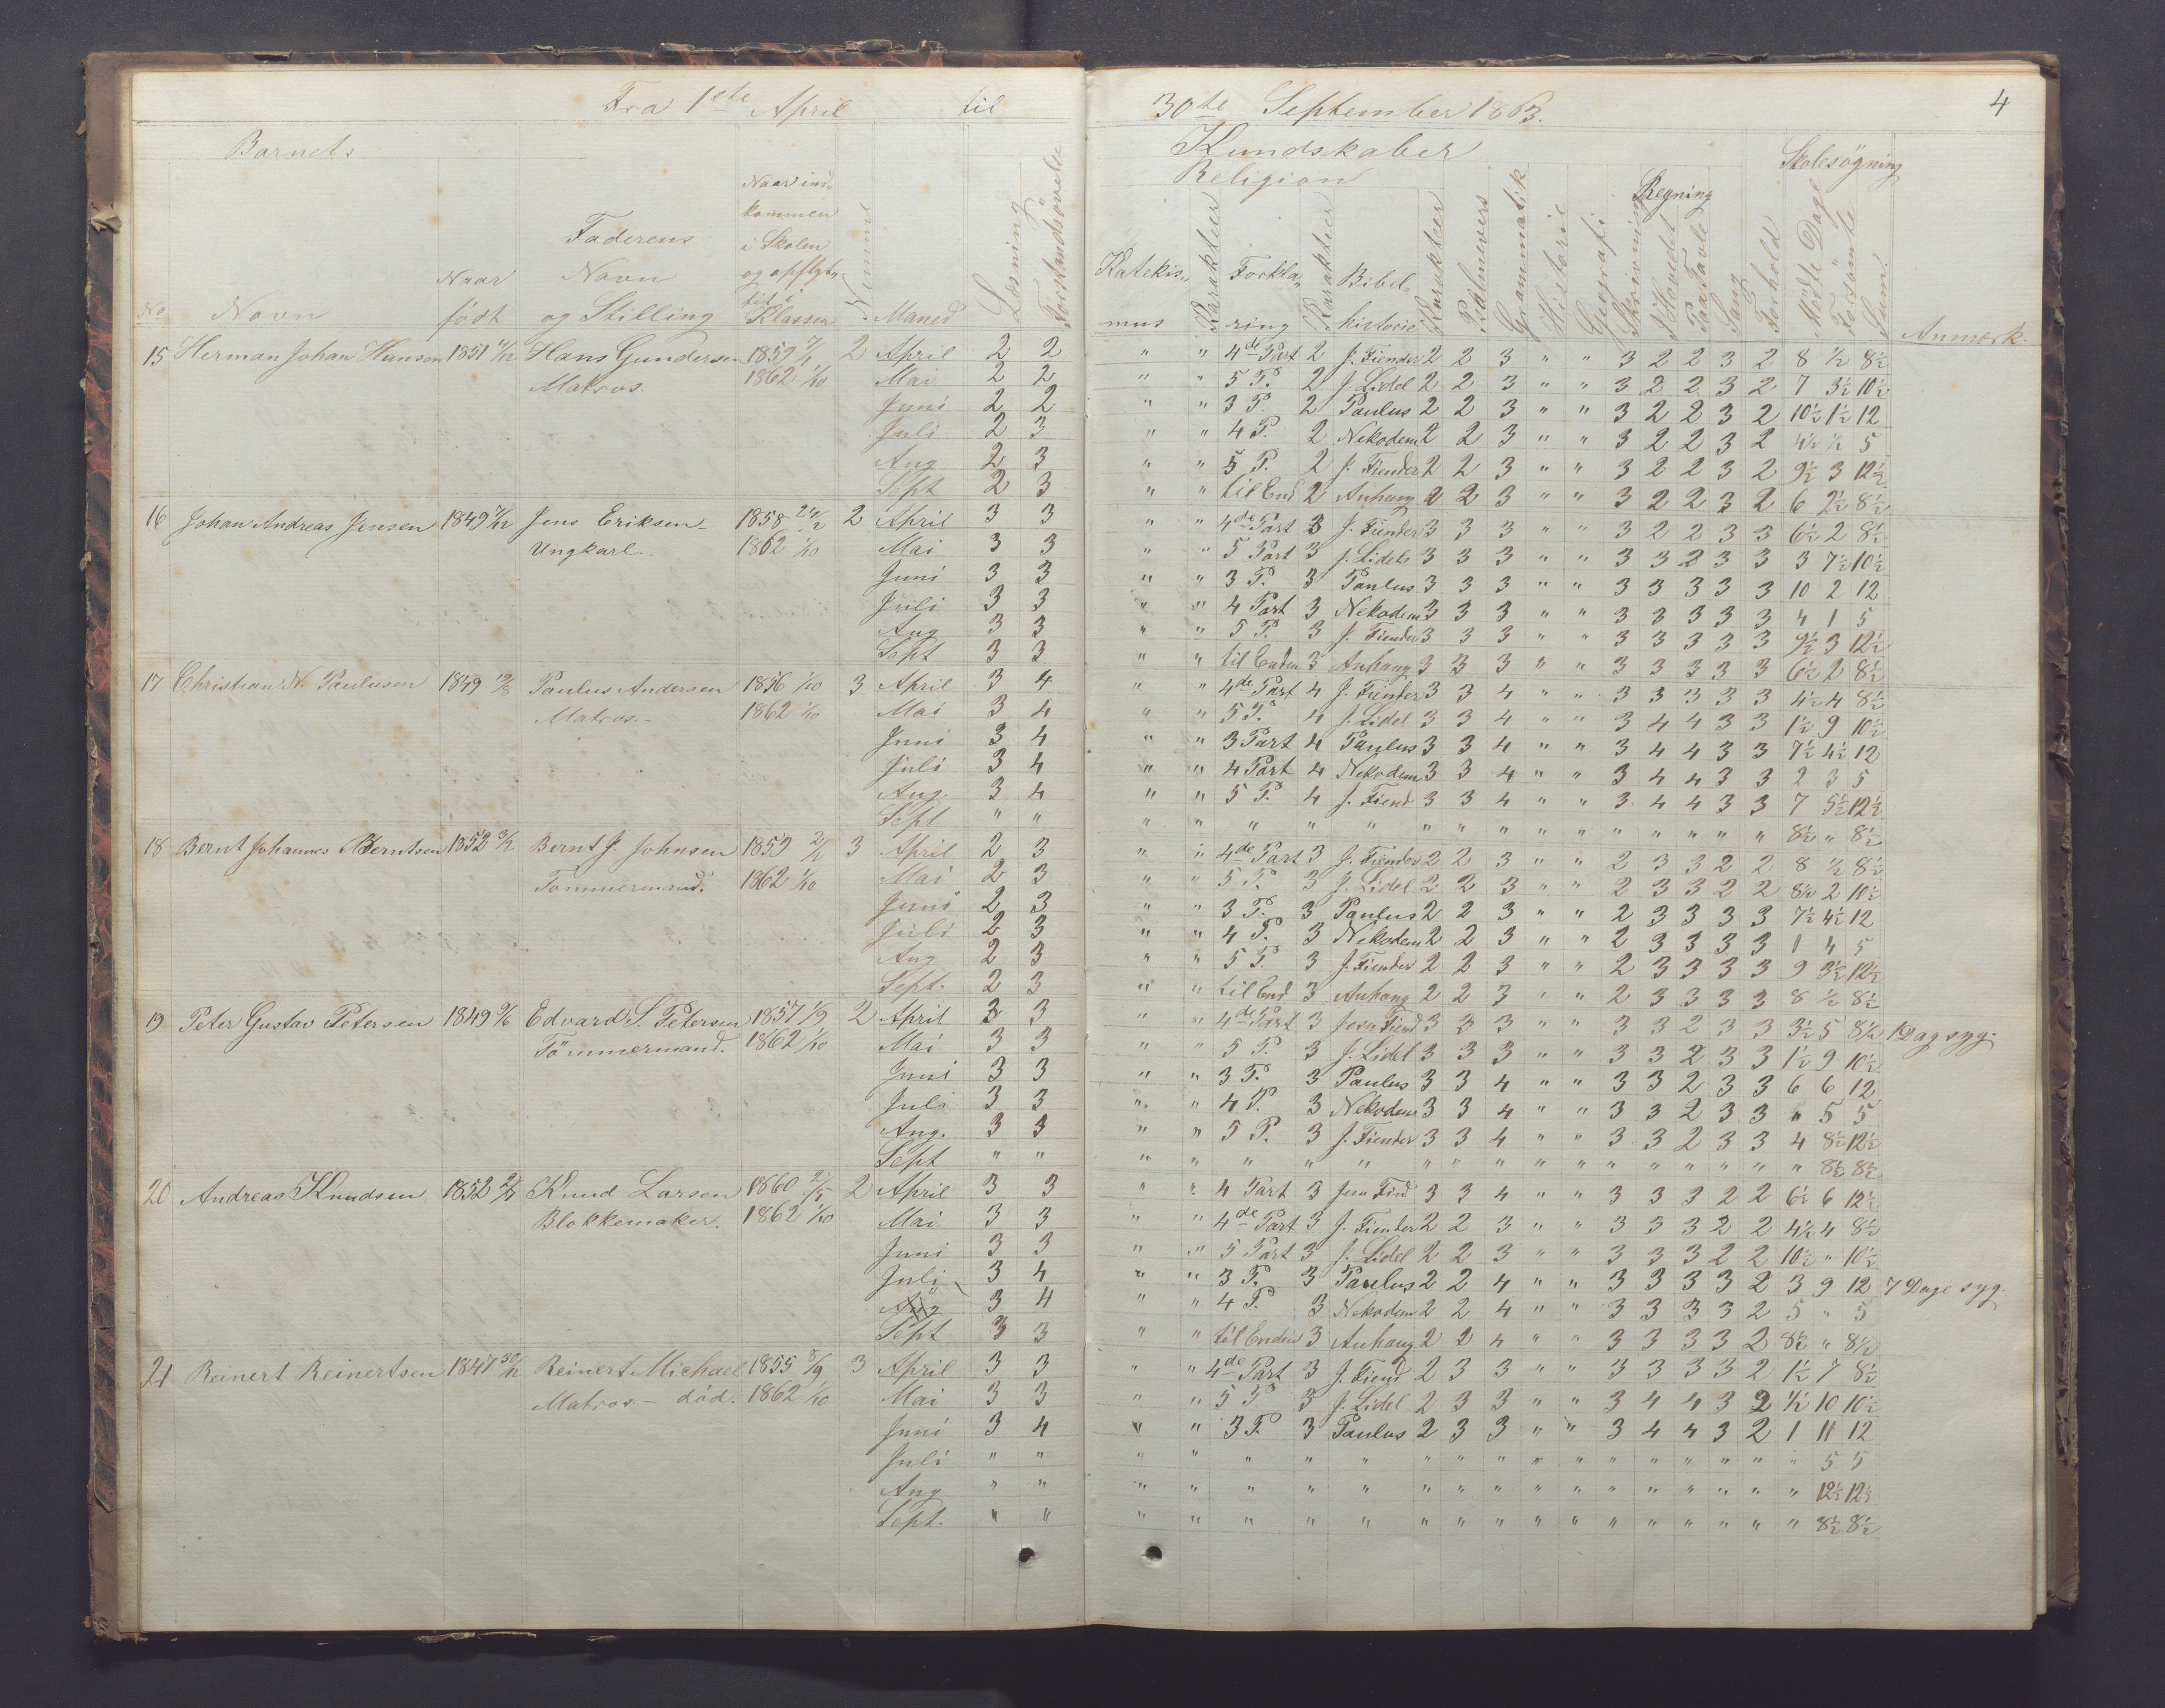 Fra 1ste April til 30te September 1863. 4
Barnets Kundskaber Skolesøgning
Religion Regning
No Navn Naar født Faderens Navn og Stilling Naar indkommen i Skolen og opflyt. til i Klassen Nummer Maned Læsning Forstandsövelse Katekismus Karakteer Forklaring Karakteer Bibelhistorie Karakteer Psalmevers Grammatik Historie Geografi Skrivning I Hovedet Paa Tavle Sang Forhold Mödte Dage Forsömte Sum. Anmærk.
15 Herman Johan Hansen 1851 Hans Gundersen 1859 2 April 2 2 " " 4de Part 2 J. Fiender 2 2 3 " " 3 2 2 3 2 8 ½ 8½
Matros. 1862 1/10 Mai 2 2 " " 5 P. 2 J. Lidel 2 2 3 " " 3 2 2 3 2 7 3½ 10½
Juni 2 2 " " 3 P. 2 Paulus 2 2 3 " " 3 2 2 3 2 10½ 1½ 12
Juli 2 3 " " 4 P. 2 Nekodem 2 2 3 " " 3 2 2 3 2 4½ ½ 5
Aug 2 3 " " 5 P. 2 J. Fiender 2 2 3 " " 3 2 2 3 2 9½ 3 12½
Sept 2 3 " " til End 2 Anhang 2 2 3 " " 3 2 2 3 2 6 2½ 8½
16 Johan Andreas Jensen 1849 Jens Eriksen 1858 24/2 2 April 3 3 " " 4de Part 3 J. Fiender 3 3 3 " " 3 2 2 3 3 6½ 2 8½
Ungkarl. 1862 1/10 Mai 3 3 " " 5 Part 3 J. Lidel 3 3 3 " " 3 3 2 3 3 3 7½ 10½
Juni 3 3 " " 3 P. 3 Paulus 3 3 3 " " 3 3 3 3 3 10 2 12
Juli 3 3 " " 4 Part 3 Nekodem 3 3 3 " " 3 3 3 3 3 4 1 5
Aug 3 3 " " 5 P. 3 J. Fiender 3 3 3 " " 3 3 3 3 3 9½ 3 12½
Sept 3 3 " " til Enden 3 Anhang 3 3 3 " " 3 3 3 3 3 6½ 2 8½
17 Christian N. Paulusen 1849 Paulus Andersen 1856 1/10 3 April 3 4 " " 4de Part 4 J. Fiender 3 3 4 " " 3 3 3 3 3 4½ 4 8½
Matros. 1862 1/10 Mai 3 4 " " 5 P. 4 J. Lidel 3 3 4 " " 3 4 4 3 3 1½ 9 10½
Juni 3 4 " " 3 Part 4 Paulus 3 3 4 " " 3 4 4 3 3 7½ 4½ 12
Juli 3 4 " " 4 Part 4 Nekodem 3 3 4 " " 3 4 4 3 3 2 3 5
Aug. 3 4 " " 5 P. 4 J. Fiend 3 3 4 " " 3 4 4 3 3 7 5½ 12½
Sept " " " " " " " " " " " " " " " " " 8½ " 8½
18 Bernt Johannes Berntsen 1852 Bernt J. Johnsen 1859 3 April 2 3 " " 4de Part 3 J. Fiender 2 2 3 " " 2 3 3 2 2 8 ½ 8½
Tömmermand. 1862 1/10 Mai 2 3 " " 5 P. 3 J. Lidel 2 2 3 " " 2 3 3 2 2 8½ 2 10½
Juni 2 3 " " 3 P. 3 Paulus 2 2 3 " " 2 3 3 3 3 7½ 4½ 12
Juli 2 3 " " 4 P. 3 Nekodem 2 2 3 " " 2 3 3 3 3 1 4 5
Aug 2 3 " " 5 P. 3 J. Fiender 2 2 3 " " 2 3 3 3 3 9 3½ 12½
Sept. 2 3 " " til End 3 Anhang 2 2 3 " " 2 3 3 3 3 8 ½ 8½
19 Peter Gustav Petersen 1849 Edvard S. Petersen 1857 1/9 2 April 3 3 " " 4de Part 3 Jesu Fiend 3 3 3 " " 3 3 2 3 3 3½ 5 8½ 1 Dag syg.
Tömmermand. 1862 1/10 Mai 3 3 " " 5 P. 3 J. Lidel 3 3 3 " " 3 3 2 3 3 1½ 9 10½
Juni 3 3 " " 3 P. 3 Paulus 3 3 4 " " 3 3 2 3 3 6 6 12
Juli 3 3 " " 4 P. 3 Nekodem 3 3 4 " " 3 3 2 3 3 " 5 5
Aug. 3 3 " " 5 P. 3 J. Fiender 3 3 4 " " 3 3 2 3 3 4 8½ 12½
Sept " " " " " " " " " " " " " " " " " " 8½ 8½
20 Andreas Knudsen 1852 Knud Larsen 1860 2/5 2 April 3 3 " " 4 Part 3 Jesu Find 3 3 4 " " 3 3 3 2 2 6½ 6 12½
Blokkemaker. 1862 1/10 Mai 3 3 " " 4de Part 3 J. Fiender 2 2 3 " " 3 3 3 2 2 4½ 4 8½
Juni 3 3 " " 5 Part 3 J. Lidel 2 2 3 " " 3 3 3 2 2 10½ " 10½
Juli 3 4 " " 3 P. 3 Paulus 2 2 4 " " 3 3 3 3 2 3 9 12 7 Dage syg.
Aug 3 4 " " 4 P. 3 Nekodem 2 2 4 " " 3 3 3 3 2 5 " 5
Sept 3 3 " " til Enden 3 Anhang 2 2 4 " " 3 3 3 3 2 8½ " 8½
21 Reinert Reinertsen 1847 Reinert Michael 1855 3 April 3 3 " " 4de Part 3 J. Fiend 2 3 3 " " 3 3 3 3 2 1½ 7 8½
Matros - död. 1862 1/10 Mai 3 3 " " 5 P 3 J. Lidel 2 3 3 " " 3 4 4 3 2 ½ 10 10½
Juni 3 4 " " 3 P. 3 Paulus 2 3 3 " " 3 4 4 3 2 1 11 12
Juli " " " " " " " " " " " " " " " " " " 5 5
Aug " " " " " " " " " " " " " " " " " " 12½ 12½
Sept. " " " " " " " " " " " " " " " " " " 8½ 8½